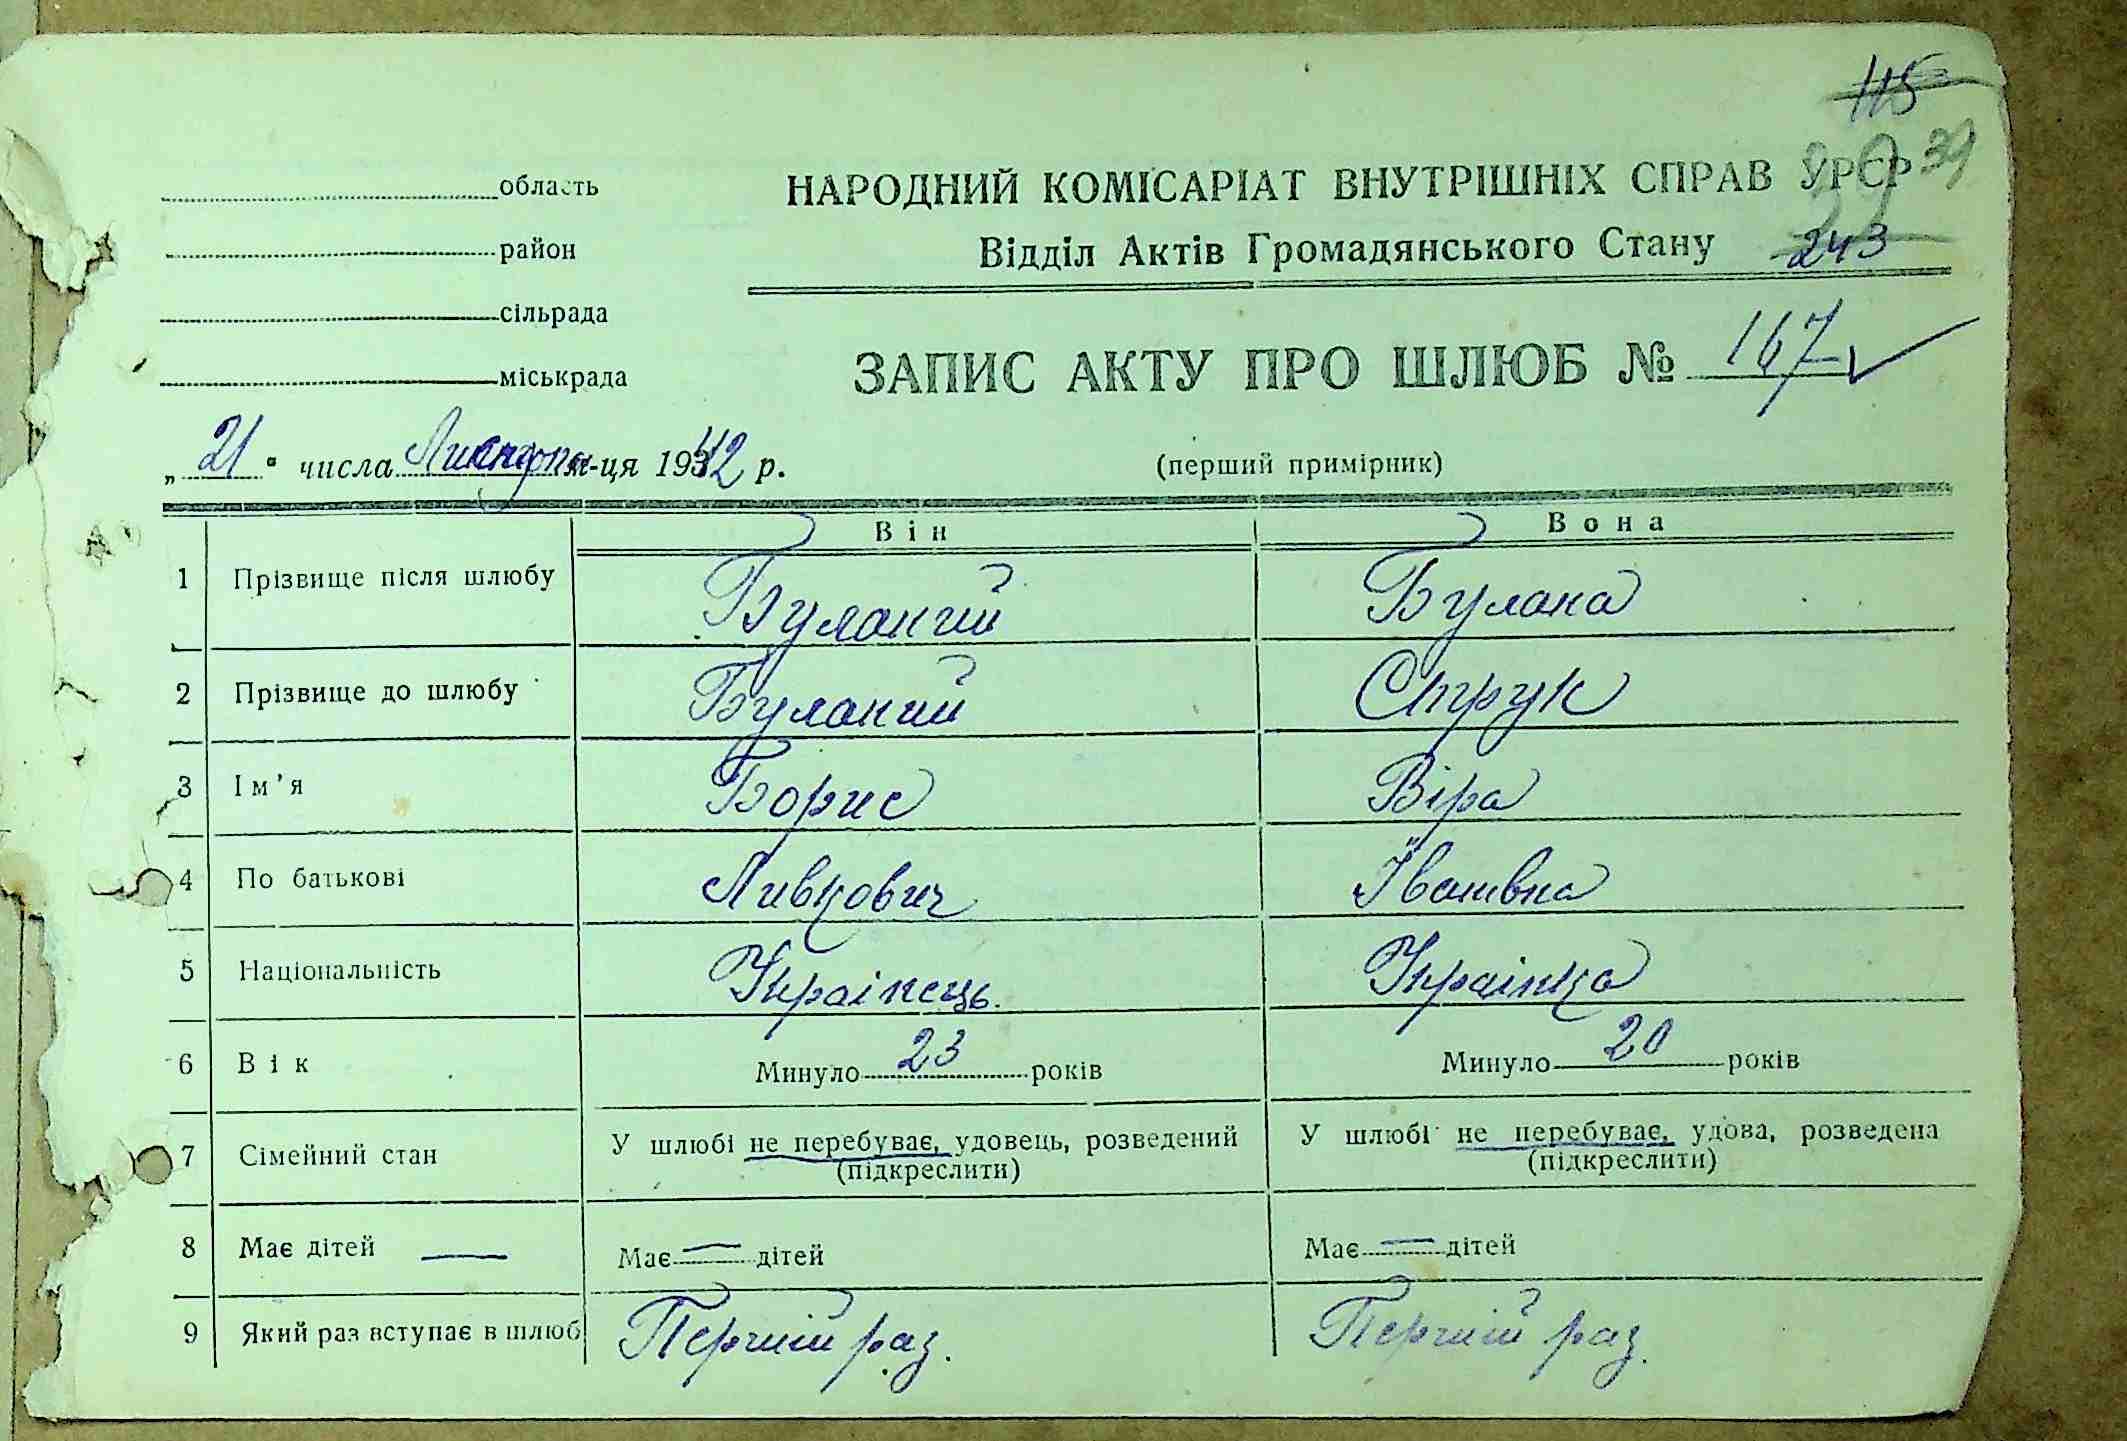 115
39
область
НАРОДНИЙ КОМІСАРІАТ ВНУТРІШНІХ СПРАВ УРСР
район
Відділ Актів Громадянського Стану
243
сільрада
міськрада
ЗАПИС АКТУ ПРО ШЛЮБ № 167
„ 21 " числа Листопа м-ця 1942 р.
(перший примірник)
Він Вона
1 Прізвище після шлюбу Буланий Булана
2 Прізвище до шлюбу Буланий Струк
3 Ім'я Борис Віра
4 По батькові Ливкович Івановна
5 Національність Українець. Українка
6 Вік Минуло 23 років Минуло 20 років
7 Сімейний стан У шлюбі не перебуває, удовець, розведений У шлюбі не перебуває, удова, розведена
(підкреслити) (підкреслити)
8 Має дітей — Має — дітей Має — дітей
9 Який раз вступає в шлюб Перший раз. Перший раз.